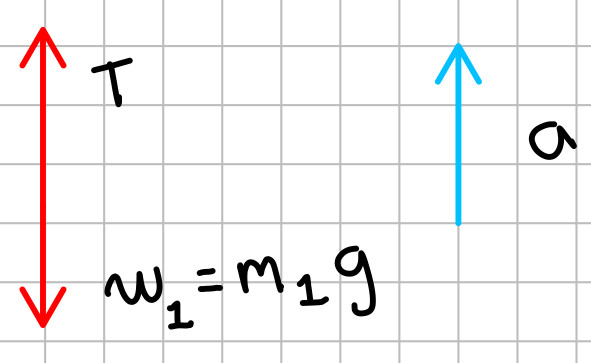 T
a
w₁ = m₁g